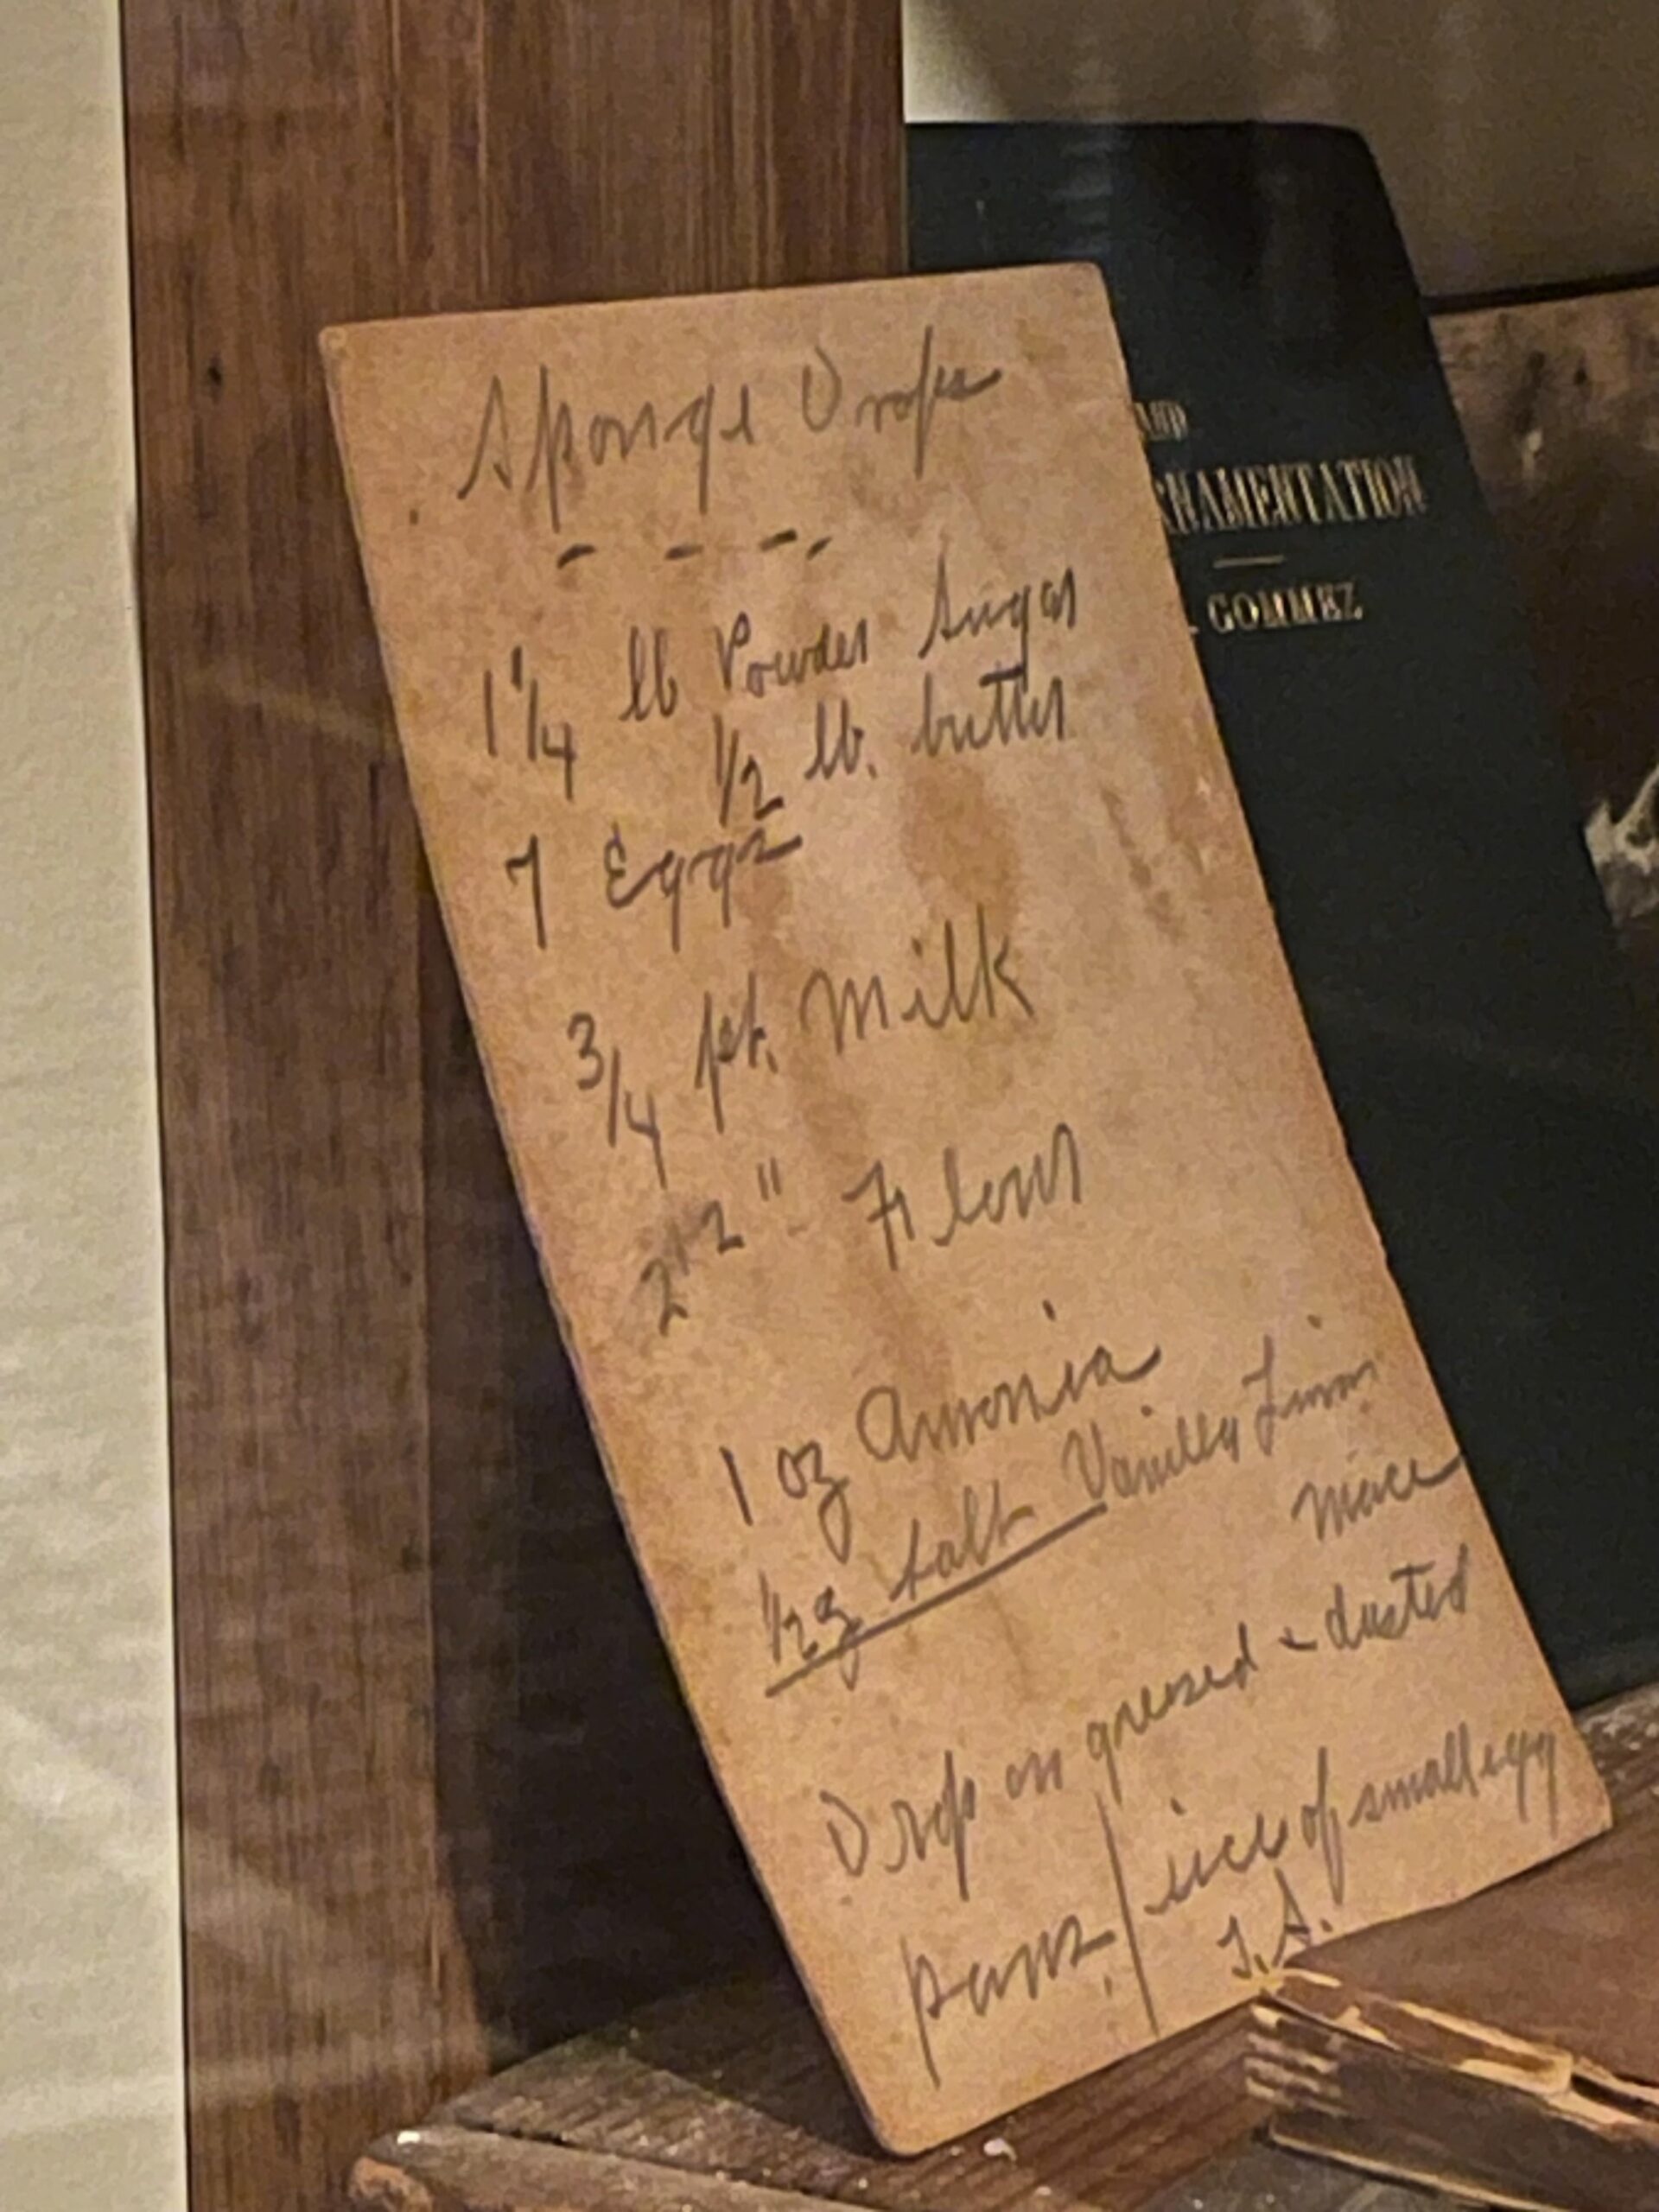 Sponge Drops
- - - -
1 1/4 lb Powder Sugar
1/2 lb. butter
7 Eggs
3/4 pt. Milk
2 1-2 " Flour
1 oz Amonia
1/2 oz salt Vanilla
Mace
Drop on greased & dusted
pans. size of small egg
T.S.
AND
RNAMENTATION
. GOMMEZ